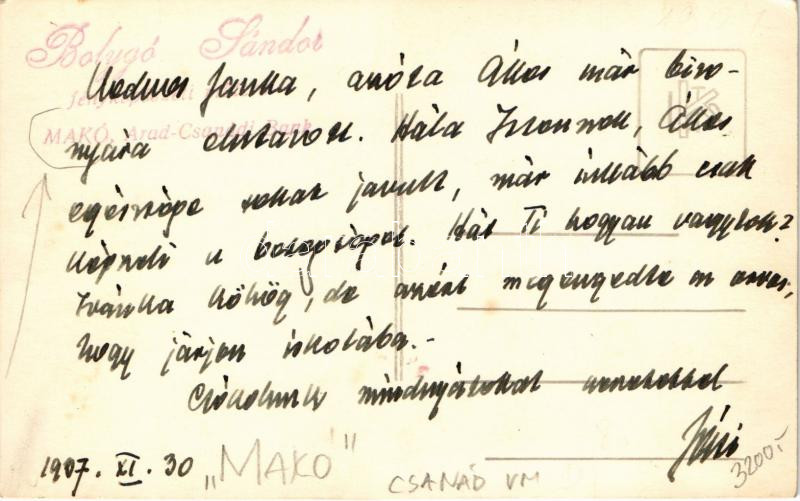 Bolygó Sándor
MAKÓ, Arad-Csanádi Bank
Kedves Janka, azóta Ákos már bizo-
nyára elutazott. Hála Istennek, Ákos
egészsége sokat javult, már inkább csak
képzeli a betegséget. Hát Ti hogyan vagytok?
Ivánka köhög, de azért megengedte az orvos,
hogy járjon iskolába.-
Csókolunk mindnyájatokat szeretettel
1907. XI. 30
„MAKÓ"
CSANÁD VM
3200.-